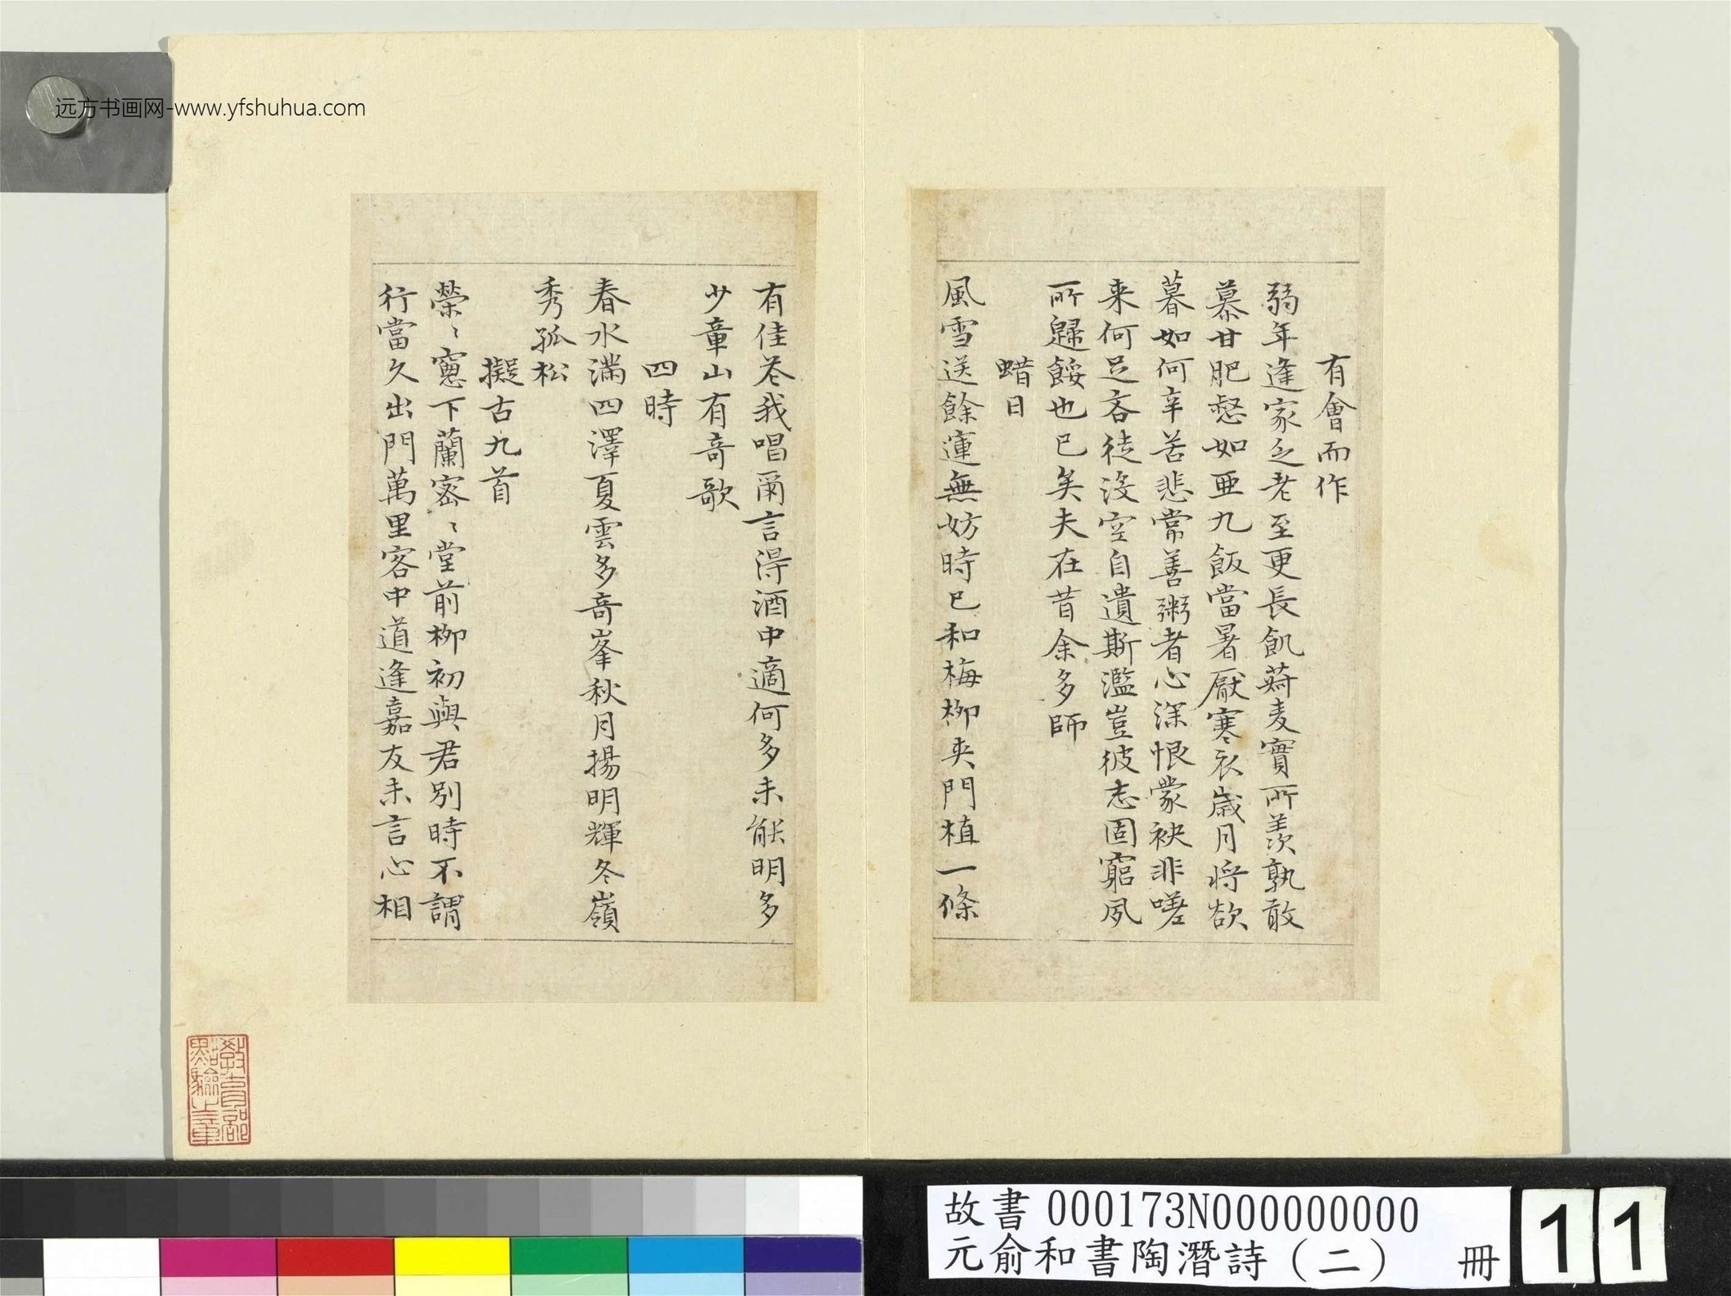 有會而作
弱年逢家乏老至更長飢菽麦實所羨孰敢
慕甘肥惄如亜九飯當暑厭寒衣歲月将欲
暮如何辛苦悲常善粥者心深恨蒙袂非嗟
来何足吝徒没空自遺斯濫豈彼志固窮夙
所歸餒也已矣夫在昔余多師
蜡日
風雪送餘運無妨時已和梅柳夹門植一條
有佳花我唱爾言得酒中適何多未能明多
少章山有奇歌
四時
春水滿四澤夏雲多奇峯秋月揚明輝冬嶺
秀孤松
擬古九首
榮〻窻下蘭密〻堂前柳初與君別時不謂
行當久出門萬里客中道逢嘉友未言心相
教育部
點驗之章
远方书画网-www.yfshuhua.com
故書 000173N000000000
元俞和書陶潛詩(二) 冊
11